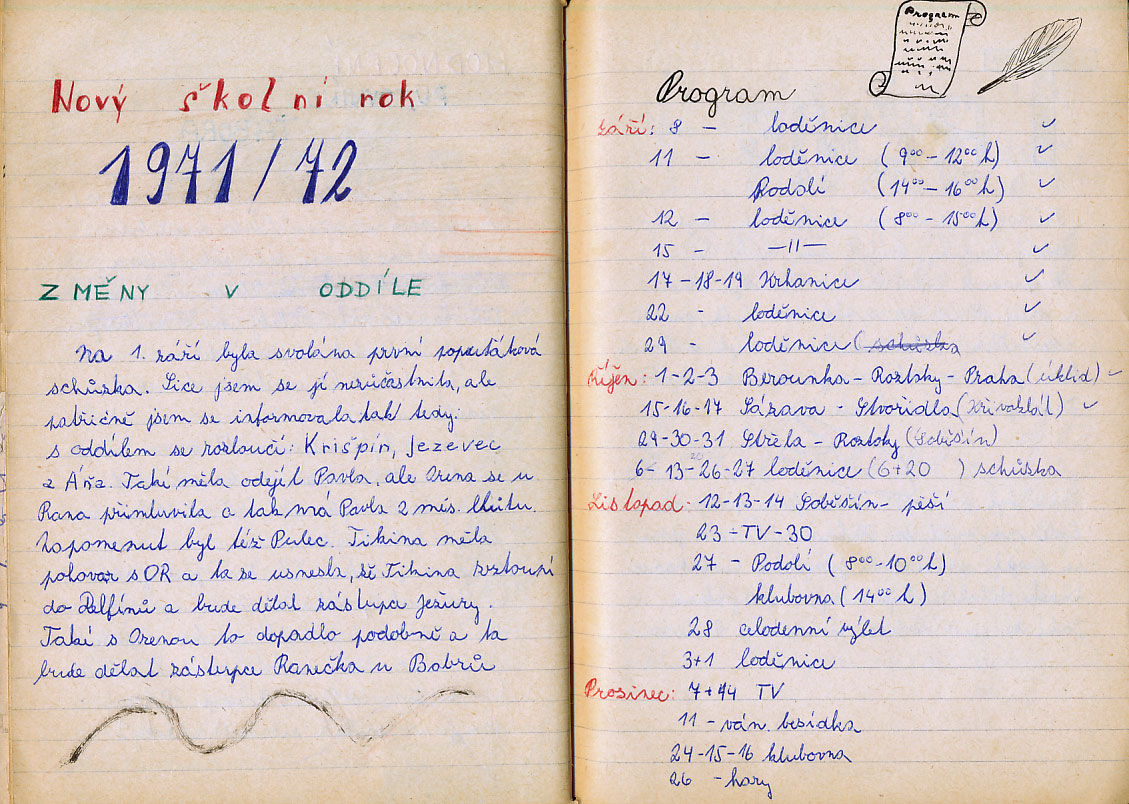 Nový školní rok
1971/72
ZMĚNY V ODDÍLE
Na 1. září byla svolána první popartáková
schůzka. Sice jsem se jí nezúčastnila, ale
patřičně jsem se informovala tak tedy:
s oddílem se rozloučí: Krišpín, Jezevec
a Áňa. Také měla odejít Pavla, ale Ozena se u
Rana přimluvila a tak má Pavla 2 měs. lhůtu.
Zapomenut byl též Pulec. Tikina měla
pohovor s OR a ta se usnesla, že Tikina vstoupí
do Delfínů a bude dělat zástupce Ježury.
Také s Ozenou to dopadlo podobně a ta
bude dělat zástupce Ranečka u Bobrů
Program
Program
Září: 8 - loděnice ✓
11 - loděnice (9⁰⁰ - 12⁰⁰ h) ✓
Podolí (14⁰⁰ - 16⁰⁰ h) ✓
12 - loděnice (8⁰⁰ - 15⁰⁰ h) ✓
15 - —II— ✓
17 - 18 - 19 Krhanice ✓
22 - loděnice ✓
29 - loděnice (schůzka ✓
Říjen: 1 - 2 - 3 Berounka - Roztoky - Praha (úklid) ✓
15-16-17 Sázava - Stvořidla (Křivoklát) ✓
29-30-31 Střela - Roztoky (Soběšín)
6- 13-26-27 loděnice (6+20 ) schůzka
Listopad: 12-13-14 Soběšín - pěší
23 - TV - 30
27 - Podolí (8⁰⁰ - 10⁰⁰ h)
klubovna (14⁰⁰ h)
28 celodenní výlet
3+1 loděnice
Prosinec: 7+14 TV
11 - ván. besídka
24-15-16 klubovna
26 - hory